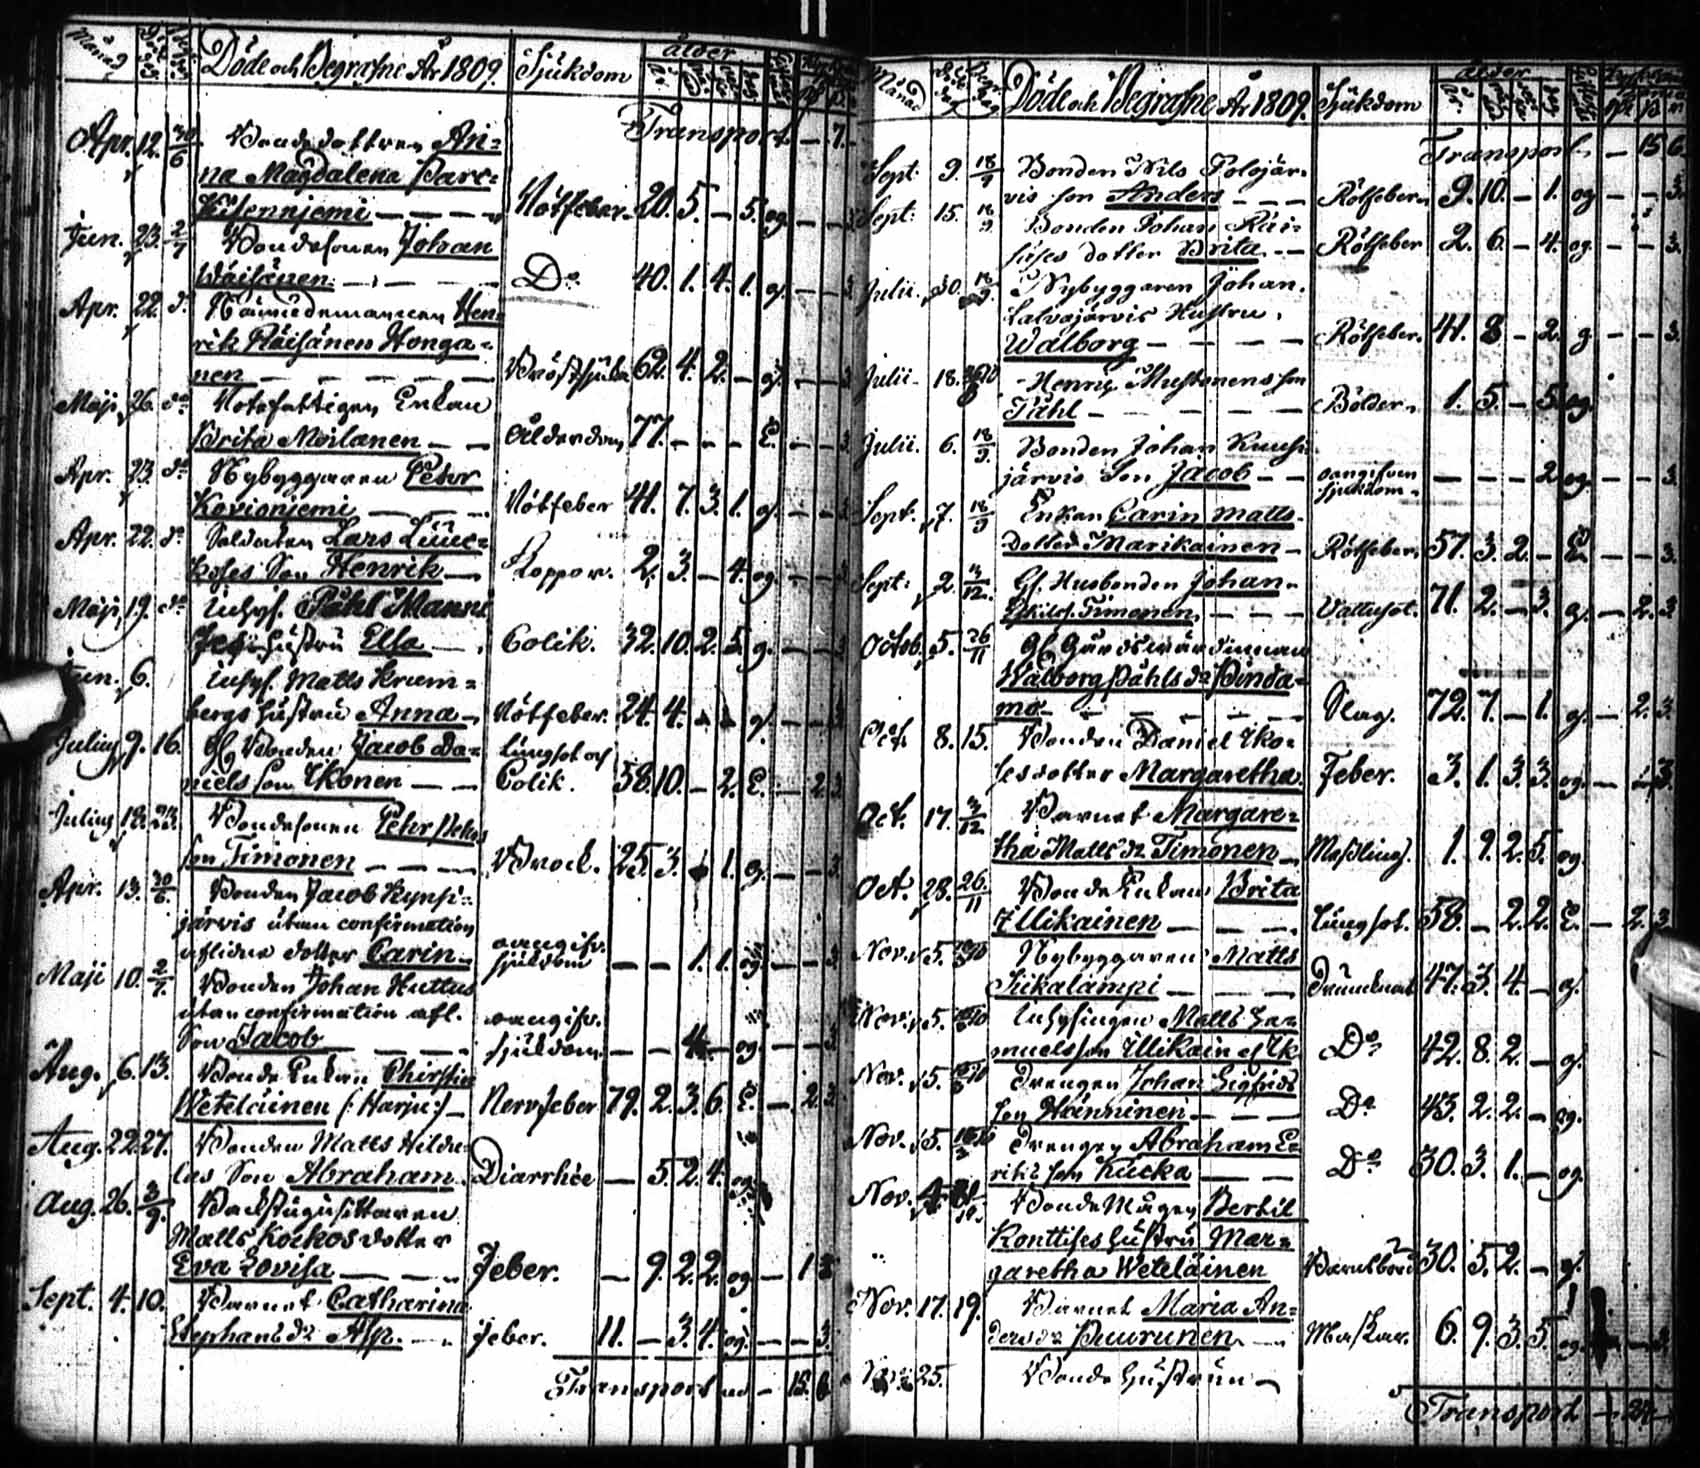 Månad
Döde och Begrafne År 1809.
Sjukdom
Ålder
Transport — 7.
Apr. 12. 30/6 Bondedottren An=
na Magdalena Pare=
Rötfeber 20. 5. — 5. og. — — 3
Jun. 23. 2/7 Bondesonen Johan
Wäisänen D:o 40. 1. 4. 1. g. — — 3
Apr. 22. d:o Nämndemannen Hen=
rik Räisänen Honga=
nen Bröstsjuka 62. 4. 2. — g. — — 3
Maji 26. d:o Rotefattigen Enkan
Brita Moilanen — — Ålderdom 77. — — — E. — — 3
Apr. 23. d:o Nybyggaren Petter
Kovioniemi Rötfeber 41. 7. 3. 1. g. — — 3
Apr. 22. d:o Soldaten Lars
Son Henrik — Koppor. 2. 3. — 4. og. — — 3
Maji 19. d:o Inhys. Påhl Manni
Hustru Elsa — Colik. 32. 10. 2. 5. g. — — 3
Jun. 6. Inhys. Matts Krum=
bergs Hustru Anna — Rötfeber. 24. 4. g. — — 3
Julius 9. 16. Gl. Bonden Jacob Da=
niels son Ikonen — — Lungsot och
Colik. 58. 10. — 2. E. — 2. 3.
Julius 19. 23. Bondesonen Pehr Pehrs
son Timonen Bråck. 25. 3. 1. g. — — 3.
Apr. 13. 30/6 Bonden Jacob Kynsi=
järvis utan confirmation
aflidne dotter Carin — oangifv.
sjukdom — — 1. 1. og. — — 3
Maji 10. 2/7. Bonden Johan Huttus
utan confirmation afl.
Son Jacob oangifv.
sjukdom — — 4. — og. — — 3
Aug. 6. 13. Bonde Enkan Christin
Weteläinen (: Harju :) — Nervfeber 79. 2. 3. 6. E. — 2. 3.
Aug. 22. 27. Bonden Matts
Son Abraham. Diarrhée — 5. 2. 4. og.
Aug. 26. 3/9. Backstugusittaren
Matts Koikos dotter
Eva Lovisa Feber. — 9. 2. 2. og. — 1. 3
Sept. 4. 10. Barnet Catharina
Stephans dr Asp. — Feber. 11. — 3. 4. og. — — 3.
Transport — 15. 6
Månad
Döde och Begrafne År 1809.
Sjukdom
Ålder
Transport — 15 6.
Sept. 9. Bonden Nils Polojär=
vis son Anders — — — Rötfeber 9. 10. — 1. og — — 3.
Sept. 15. Bonden Johan Räi=
säses dotter Brita — — Rötfeber 2. 6. — 4. og. — — 3.
Julii. 30. Nybyggaren Johan
Hustru
Walborg — — — — Rötfeber. 41. 8 — 2. g. — — 3.
Julii 18. Henric Mustonens son
Påhl — — — — Bölder. 1. 5. — 5 og.
Julii. 6. 18/9. Bonden Johan Kuusi
järvis Son Jacob — — oangifven
sjukdom. — — — 2 og. — — 3.
Sept. 7. Enkan Carin Matts
Dotter Marikainen — Rötfeber. 57. 3. 2. — E. — — 3.
Sept. 2. 3/12. Gl. Husbonden Johan
Timonen Vattusot. 71. 2. — 3. g. — 2. 3
Octob. 5. 26/11 Gl. Gårdsvärdinnan
Walborg Påhls dr Pinda=
mo — Slag. 72. 7. — 1. g. — 2. 3.
Oct. 8. 15. Bonden Daniel Iko=
ses dotter Margaretha Feber. 3. 1. 3. 3. og. — — 3.
Oct. 17. 3/12 Barnet Margare=
tha Matts dr Timonen Messling. 1. 9. 2. 5. og
Oct. 28. 26/11 Bonde Enkan Brita
Illikainen — — — Lungsot. 58. — 2. 2. E. — 2. 3
Nov. 5. Nybyggaren Matts
Siikalampi — — — Drunknat 47. 3. 4. — g.
Nov. 5. Inhysingen Matts Sa=
muelsson Illikain D:o 42. 8. 2. — g.
Nov. 5. Drengen Johan Sigfrids
son Hänninen — — D:o 43. 2. 2. — og.
Nov. 5. Drengen Abraham E=
riks son Kucka — — D:o 30. 3. 1. — og.
Nov. 4. Bonde Mågen Bertil
Konttises Hustru Mar=
garetha Weteläinen Barnsbörd 30. 5. 2. — g.
Nov. 17. 19. Barnet Maria An=
ders dr Puurunen — Maskar. 6. 9. 3. 5. og.
25. Bonde Hustrun —
Transport — 24